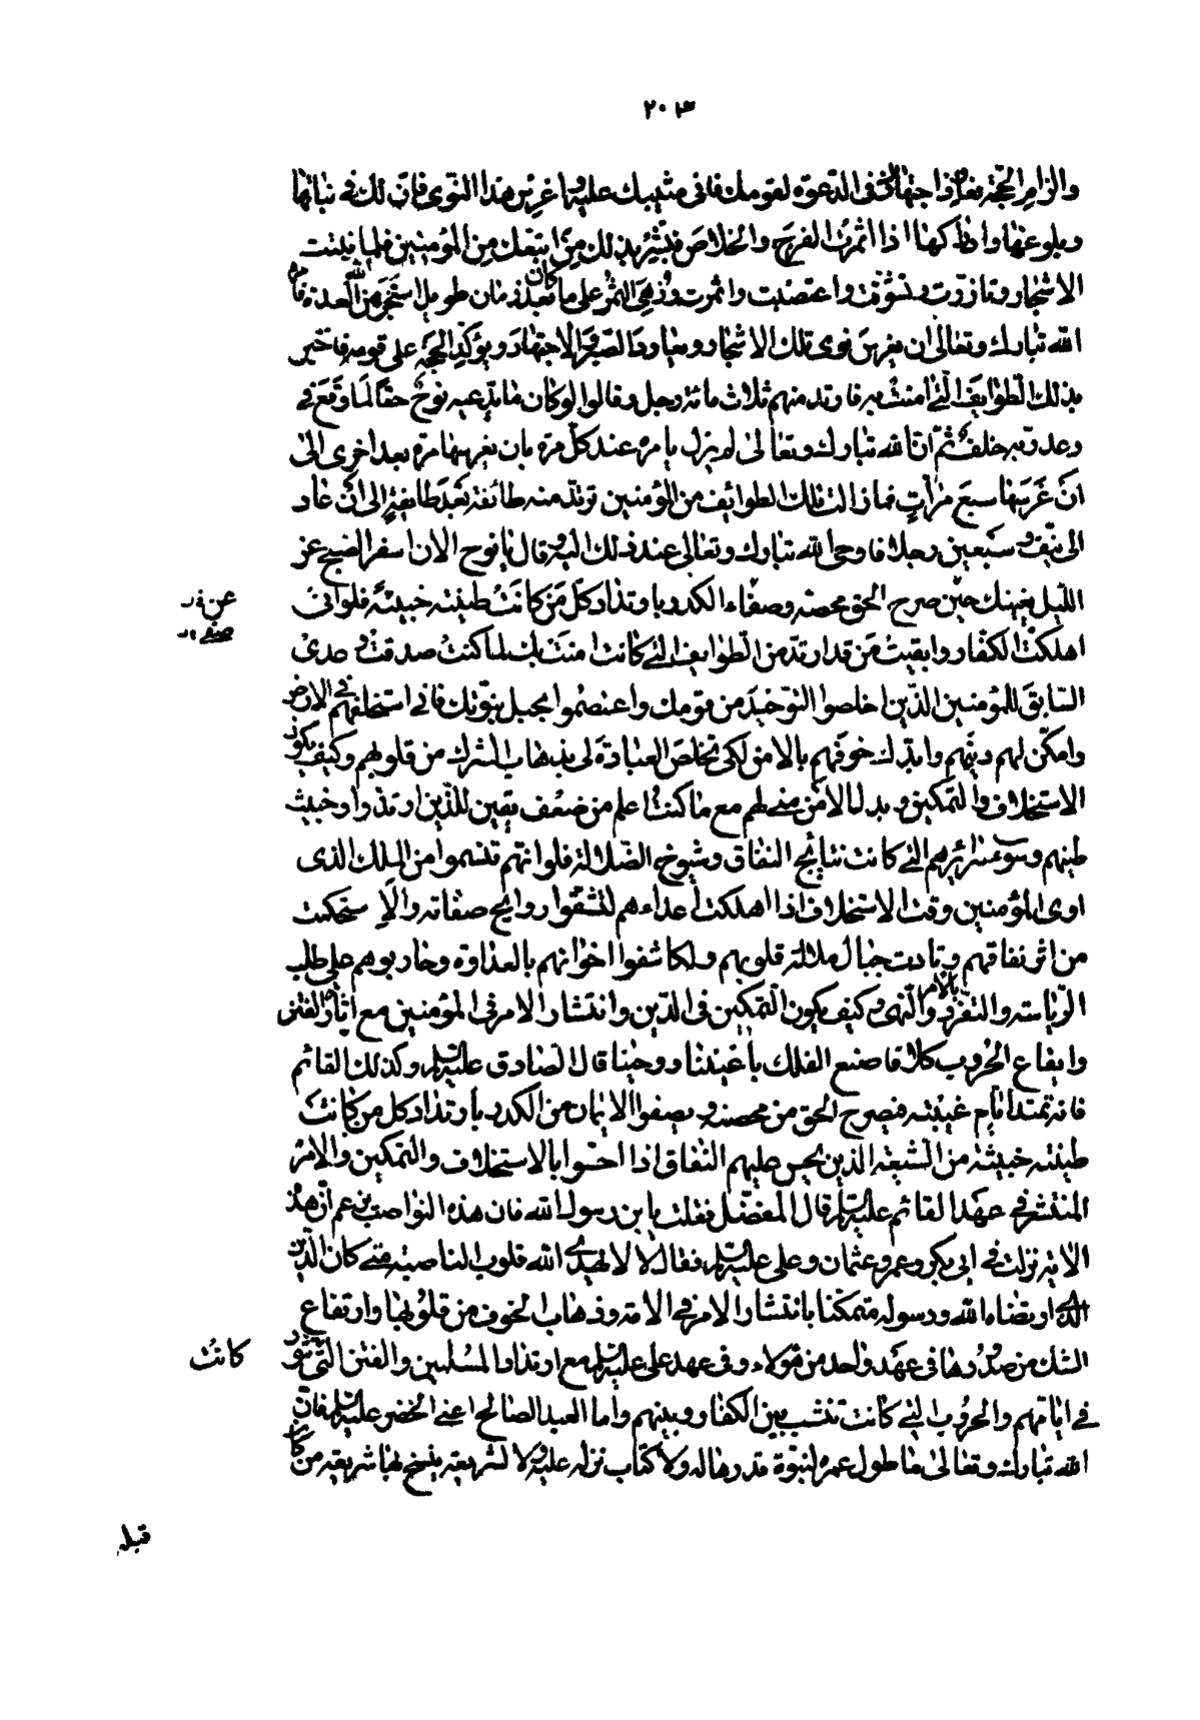 ٢٠٣
والزام الحجة فعاود اجتهادك فى الدعوة لقومك فانى مثيبك عليه واغرس هذا النوى فان لك فى نباتها
وبلوغها وادراكها اذا اثمرت الفرج والخلاص فبشر بذلك من اتبعك من المؤمنين فلما نبتت
الاشجار وتازرت وتسوقت واغتصنت واثمرت وزهى الثمر على ما كان بعد زمان طويل استنجز من الله العدة فامره
الله تبارك وتعالى ان يغرس نوى تلك الاشجار ويعاود الصبر والاجتهاد ويؤكد الحجة على قومه فاخبر
بذلك الطوايف التى امنت به فارتد منهم ثلاث مائة رجل وقالوا لو كان ما يدعيه نوح حقا لما وقع فى
وعد ربه خلف ثم ان الله تبارك وتعالى لم يزل يامره عند كل مرة بان يغرسها مرة بعد اخرى الى
ان غرسها سبع مرات فما زالت تلك الطوائف من المؤمنين ترتد منه طائفة بعد طايفة الى ان عاد
الى نيف وسبعين رجلا فاوحى الله تبارك وتعالى عند ذلك اليه وقال يا نوح الان اسفر الصبح عن
الليل بعينك حين صرح الحق محضه وصفاء الكدر بارتداد كل من كانت طينته خبيثة فلو انى
عن
اهلكت الكفار وابقيت من قد ارتد من الطوايف التى كانت امنت بك لما كنت صدقت وعدى
السابق للمؤمنين الذين اخلصوا التوحيد من قومك واعتصموا بحبل نبوتك فانى استخلفهم فى الارض
وامكن لهم دينهم وابدل خوفهم بالامن لكى تخلص العبادة لى بذهاب الشرك من قلوبهم وكيف يكون
الاستخلاف والتمكين وبدل الامن منى لهم مع ما كنت اعلم من ضعف يقين الذين ارتدوا وخبث
طينهم وسوء سرائرهم التى كانت نتائج النفاق وشيوخ الضلالة فلو انهم تنسموا من الملك الذى
اوى المؤمنين وقت الاستخلاف اذا اهلكت اعداءهم لنشقوا روايح صفاته ولا ستحكمت
من اثر نفاقهم وتابدت حبال ضلالة قلوبهم ولكاشفوا اخوانهم بالعداوة وحاربوهم على طلب
الرياسة والتفرد بالامر والنهى وكيف يكون التمكين فى الدين وانتشار الامر فى المؤمنين مع اثارة الفتن
وايقاع الحروب كلا فاصنع الفلك باعيننا ووحينا قال الصادق عليه السلم وكذلك القائم
فانه تمتد ايام غيبته فيصرح الحق من محضه ويصفوا الايمان من الكدر بارتداد كل من كانت
طينته خبيثة من الشيعة الذين يخس عليهم النفاق اذا احسوا بالاستخلاف والتمكين والامر
المنتشر فى عهد القائم عليه السلم قال المفضل فقلت يا بن رسول الله فان هذه النواصب تزعم ان هذه
الاية نزلت فى ابى بكر وعمر وعثمان وعلى عليه السلم فقال لا لا يهدى الله قلوب الناصبة متى كان الدين
الذى ارتضاه الله ورسوله متمكنا بانتشار الامر فى الامة وذهاب الخوف من قلوبها وارتفاع
الشك من صدورها فى عهد واحد من هؤلاء وفى عهد على عليه السلم مع ارتداد المسلمين والفتن التى تثور
كانت
فى ايامهم والحروب التى كانت تنشب بين الكفار وبينهم واما العبد الصالح اعنى الخضر عليه السلم فان
الله تبارك وتعالى ما طول عمره لنبوة قدرها له ولا كتاب نزله عليه ولا لشريعة ينسخ بها شريعة من كان
قبله